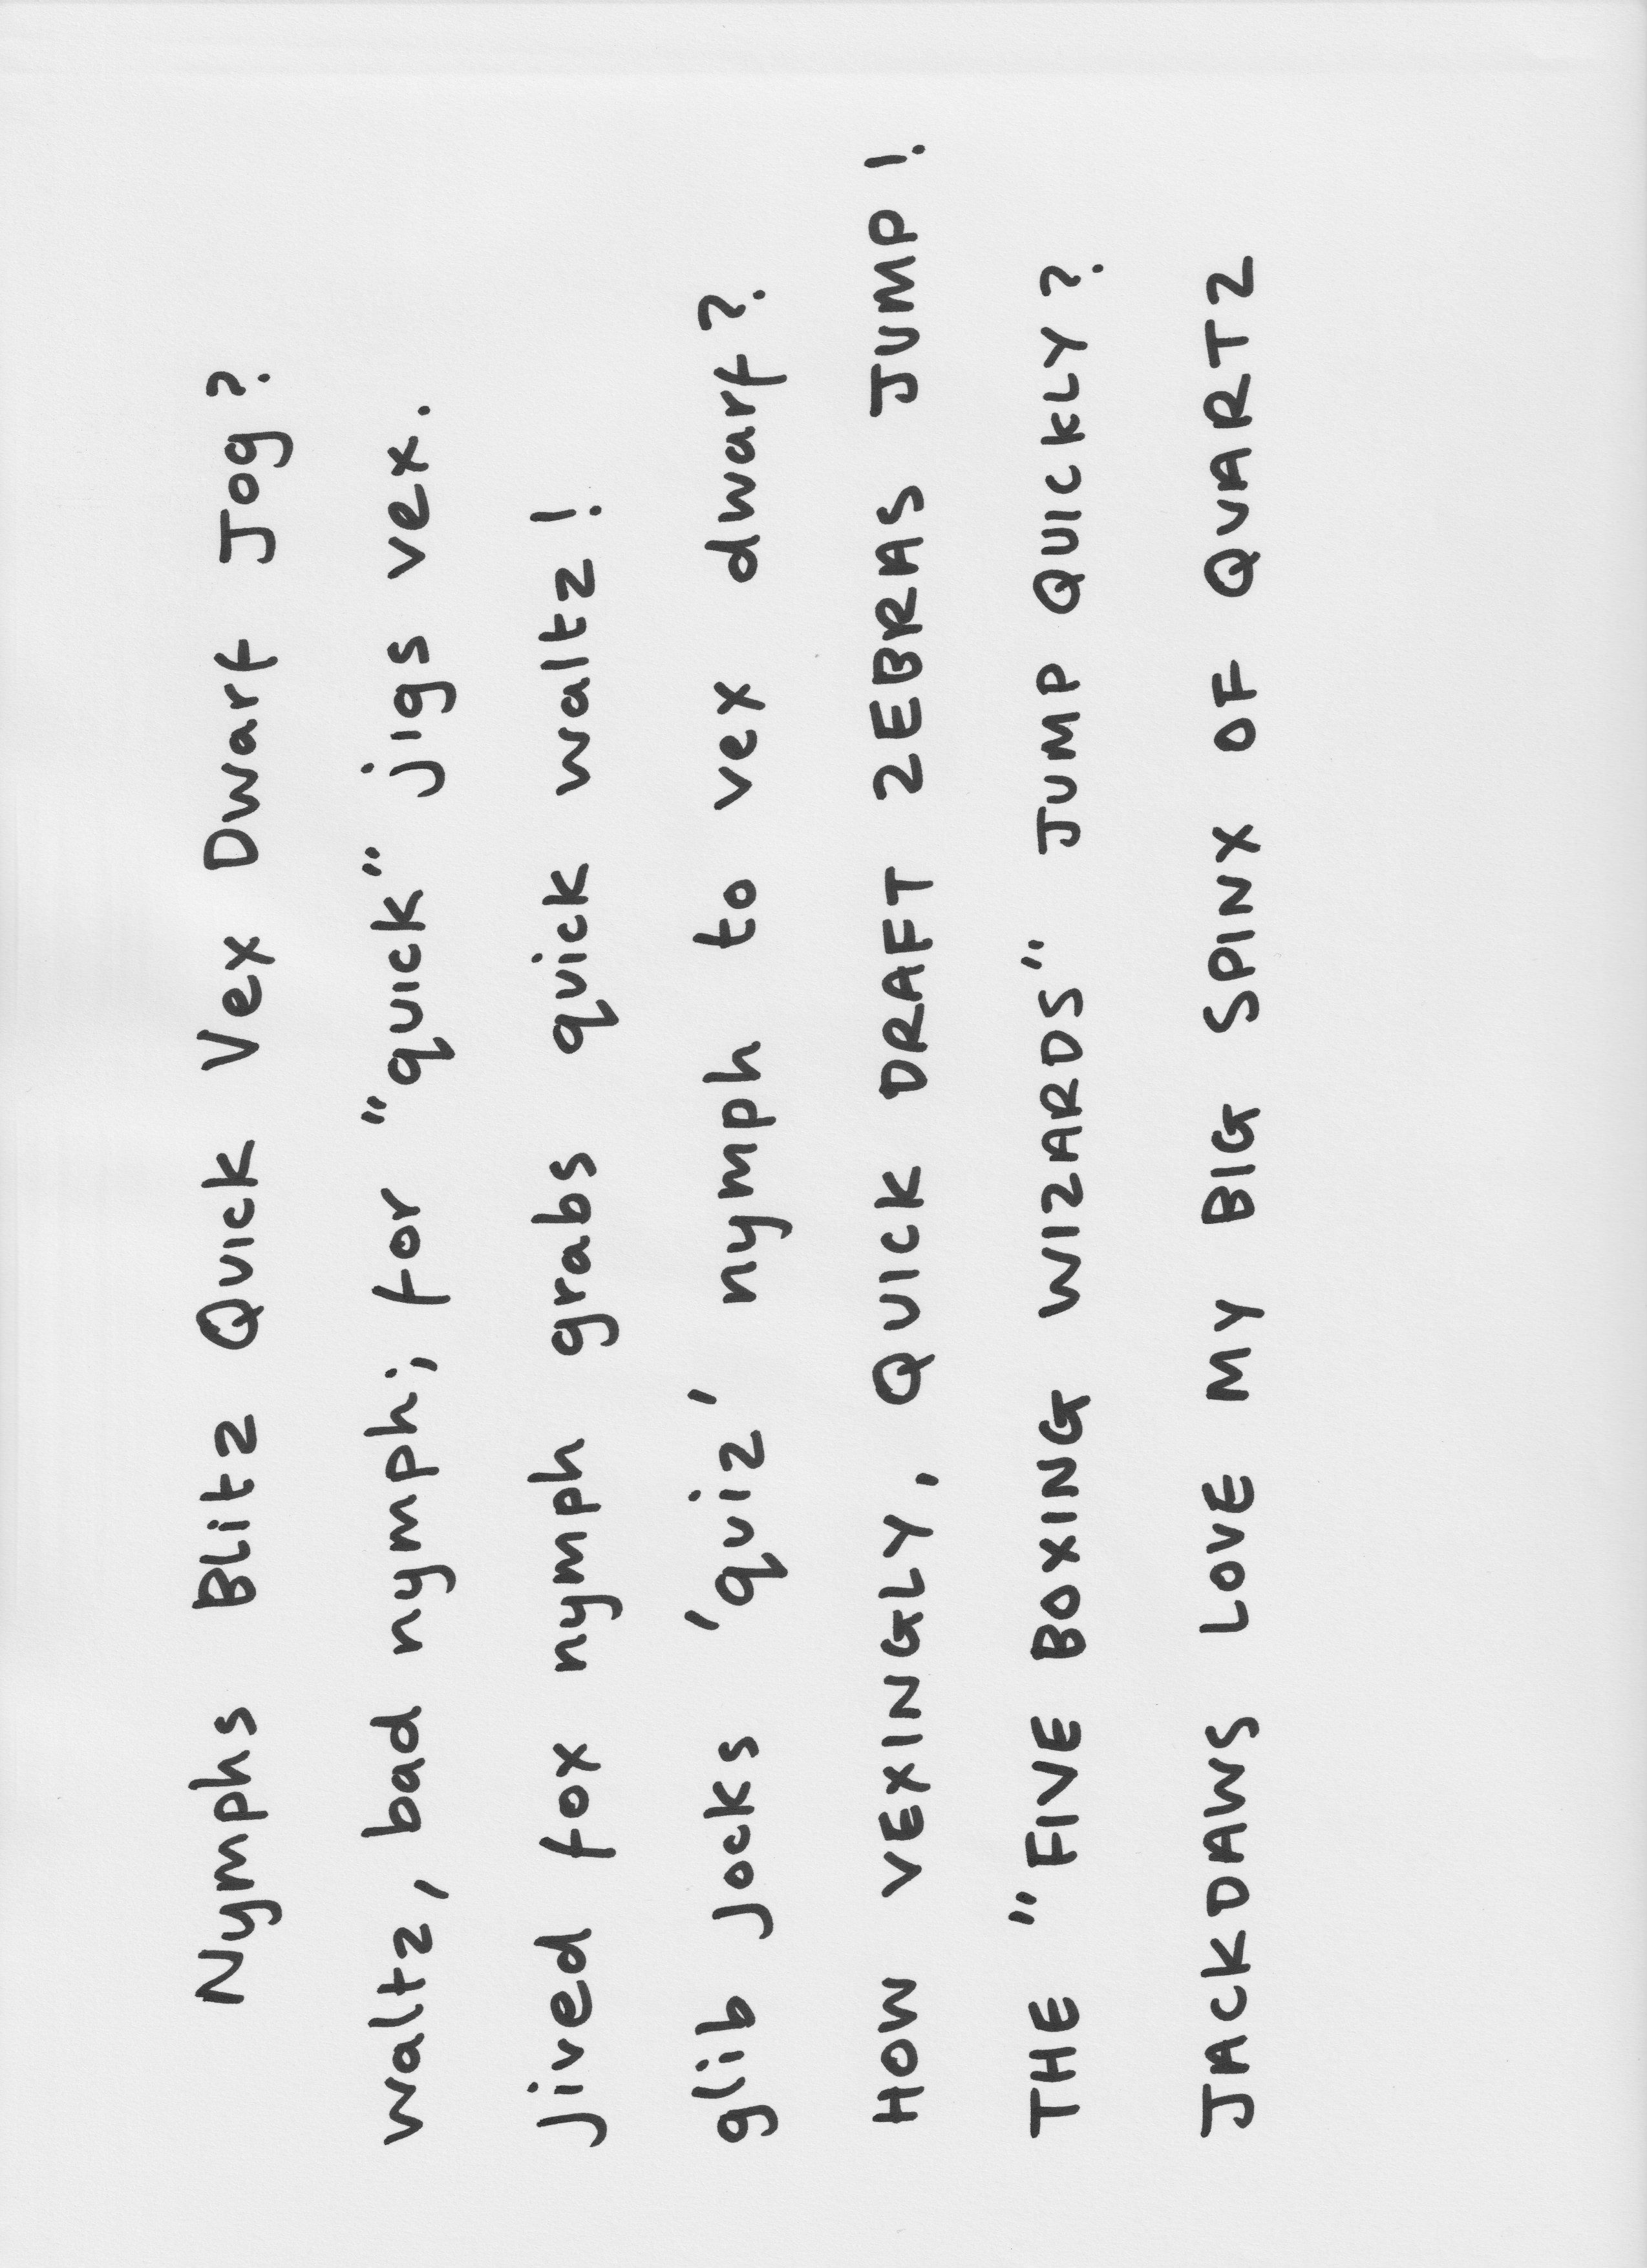 Nymphs Blitz Quick Vex Dwarf Jog?
waltz, bad nymph; for "quick" jigs vex.
Jived fox nymph grabs quick waltz!
glib jocks 'quiz' nymph to vex dwarf?
HOW VEXINGLY, QUICK DRAFT ZEBRAS JUMP!
THE "FIVE BOXING WIZARDS" JUMP QUICKLY?
JACKDAWS LOVE MY BIG SPINX OF QUARTZ